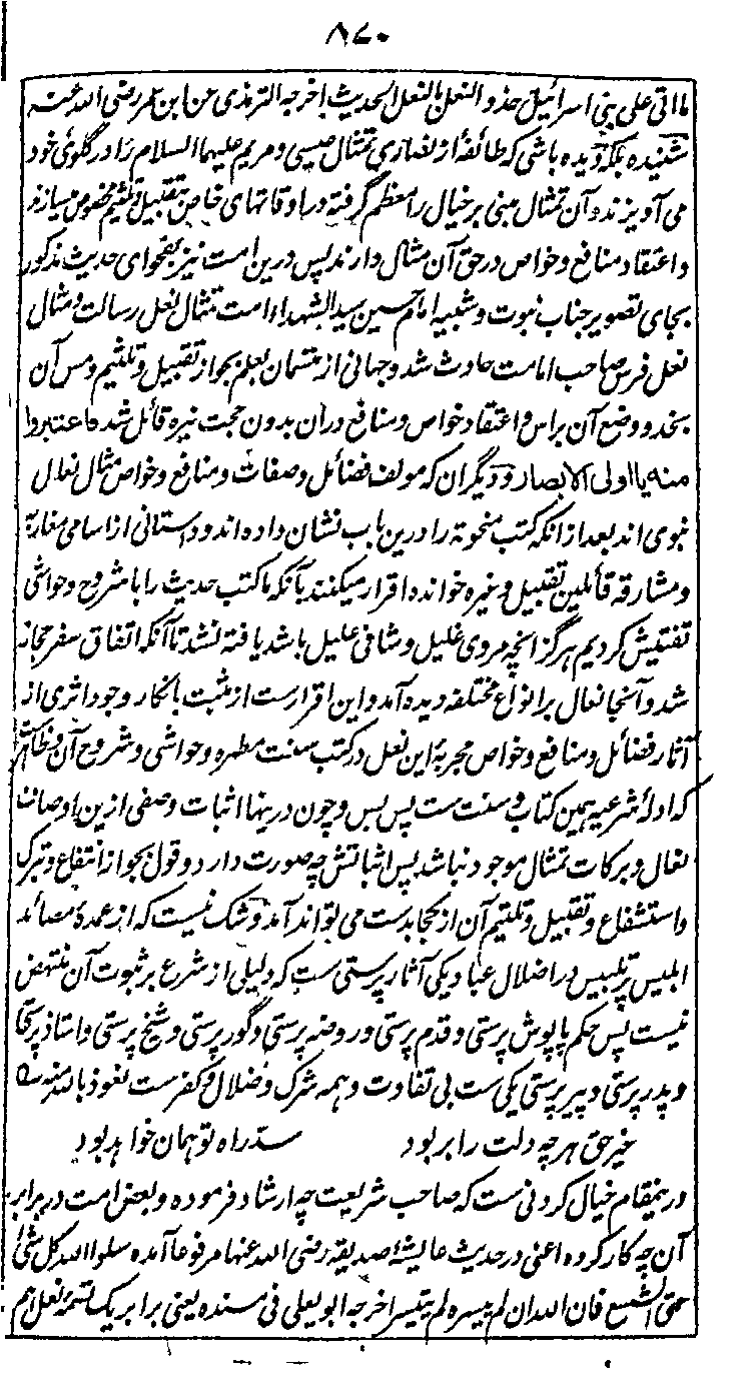 ۸۷۰
ما اتی علی بنی اسرائیل حذو النعل بالنعل الحدیث اخرجه الترمذی عن ابن عمر رضی الله عنه
شنیده بلکه دیده باشی که طائفهٔ از نصاری تمثال عیسی و مریم علیهما السلام را در گلوی خود
می آویزند و آن تمثال مبنی بر خیال را معظم گرفته در اوقاتهای خاص بتقبیل و تلثیم مخصوص میسازند
و اعتقاد منافع و خواص در حق آن مثال دارند پس درین امت نیز بفحوای حدیث مذکور
بجای تصویر جناب نبوت و شبیه امام حسین سید الشهداء امت تمثال نعل رسالت و مثال
نعل فرس صاحب امامت حادث شد و جهانی از متسمان بعلم بجواز تقبیل و تلثیم و مس آن
بخد و وضع آن براس و اعتقاد خواص و منافع دران بدون حجت نیره قائل شد فاعتبروا
منه یا اولی الابصار و دیگران که مولف فضائل و صفات و منافع و خواص مثال نعال
نبوی اند بعد از انکه کتب منحوته را درین باب نشان داده اند و داستانی از اسامی مغاربه
و مشارقه قائلین تقبیل و غیره خوانده اقرار میکنند بآنکه ما کتب حدیث را با شروح و حواشی
تفتیش کردیم هرگز انچه مروی غلیل و شافی علیل باشد یافته نشد تا آنکه اتفاق سفر حجاز
شد و آنجا نعال بر انواع مختلفه دیده آمد و این اقرارست از مثبت بانکار وجود اثری از
آثار فضائل و منافع و خواص مجربهٔ این نعل در کتب سنت مطهره و حواشی و شروح آن و ظاهرست
که ادلهٔ شرعیه همین کتاب و سنت ست پس بس و چون درینها اثبات وصفی ازین اوصاف
نعال و برکات تمثال موجود نباشد پس اثباتش چه صورت دارد و قول بجواز انتفاع و تبرک
و استشفاع و تقبیل و تلثیم آن از کجا بدست می تواند آمد و شک نیست که از عمدهٔ مصائد
ابلیس پر تلبیس در اضلال عباد یکی آثار پرستی ست که دلیلی از شرع بر ثبوت آن منتهض
نیست پس حکم پاپوش پرستی و قدم پرستی و روضه پرستی و گور پرستی و شیخ پرستی و استاذ پرستی
و پدر پرستی و پیر پرستی یکی ست بی تفاوت و همه شرک و ضلال و کفرست نعوذ بالله منه
غیر حق هر چه دلت را بربود سد راه تو همان خواهد بود
درینمقام خیال کردنی ست که صاحب شریعت چه ارشاد فرموده و بعض امت در برابر
آن چه کار کرده اعنی در حدیث عایشهٔ صدیقه رضی الله عنها مرفوعا آمده سلوا الله کل شئ
حتی الشسع فان الله ان لم ییسره لم یتیسر اخرجه ابو یعلی فی مسنده یعنی برابر یک تسمهٔ نعل هم